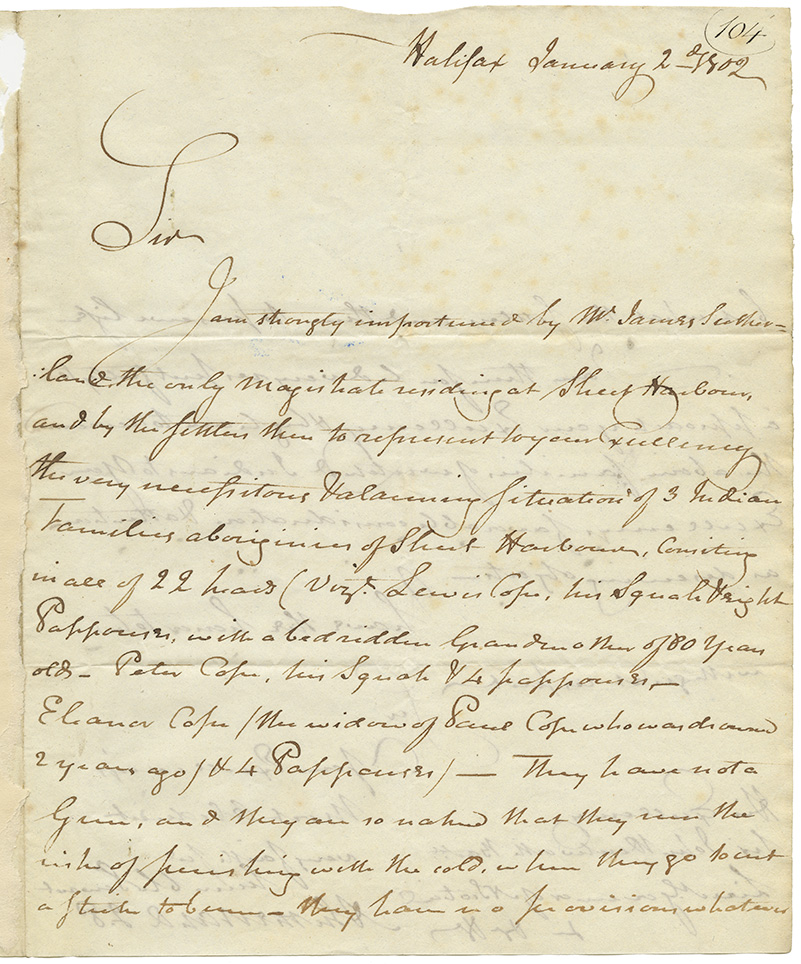 104
Halifax January 2d. 1802
Sir
I am strongly importuned by Mr. James Suther=
:land, the only Magistrate residing at Sheet Harbour,
and by the settlers there to represent to your Excellency
the very necessitous & alarming situation of 3 Indian
Families aboriginies of Sheet Harbour, Consiting
in all of 22 heads (Vizt. Lewis Cope, his Squah & eight
Pappouses, with a bedridden Grandmother of 80 years
old - Peter Cope, his Squah & 4 pappouses, -
Eleanor Cope / the widow of Paul Cope who was drowned
2 years ago / & 4 Pappouses) — They have not a
Gun, and they are so naked that they run the
risk of perishing with the cold, when they go to cut
a stick to burn - they have no provisions whatever